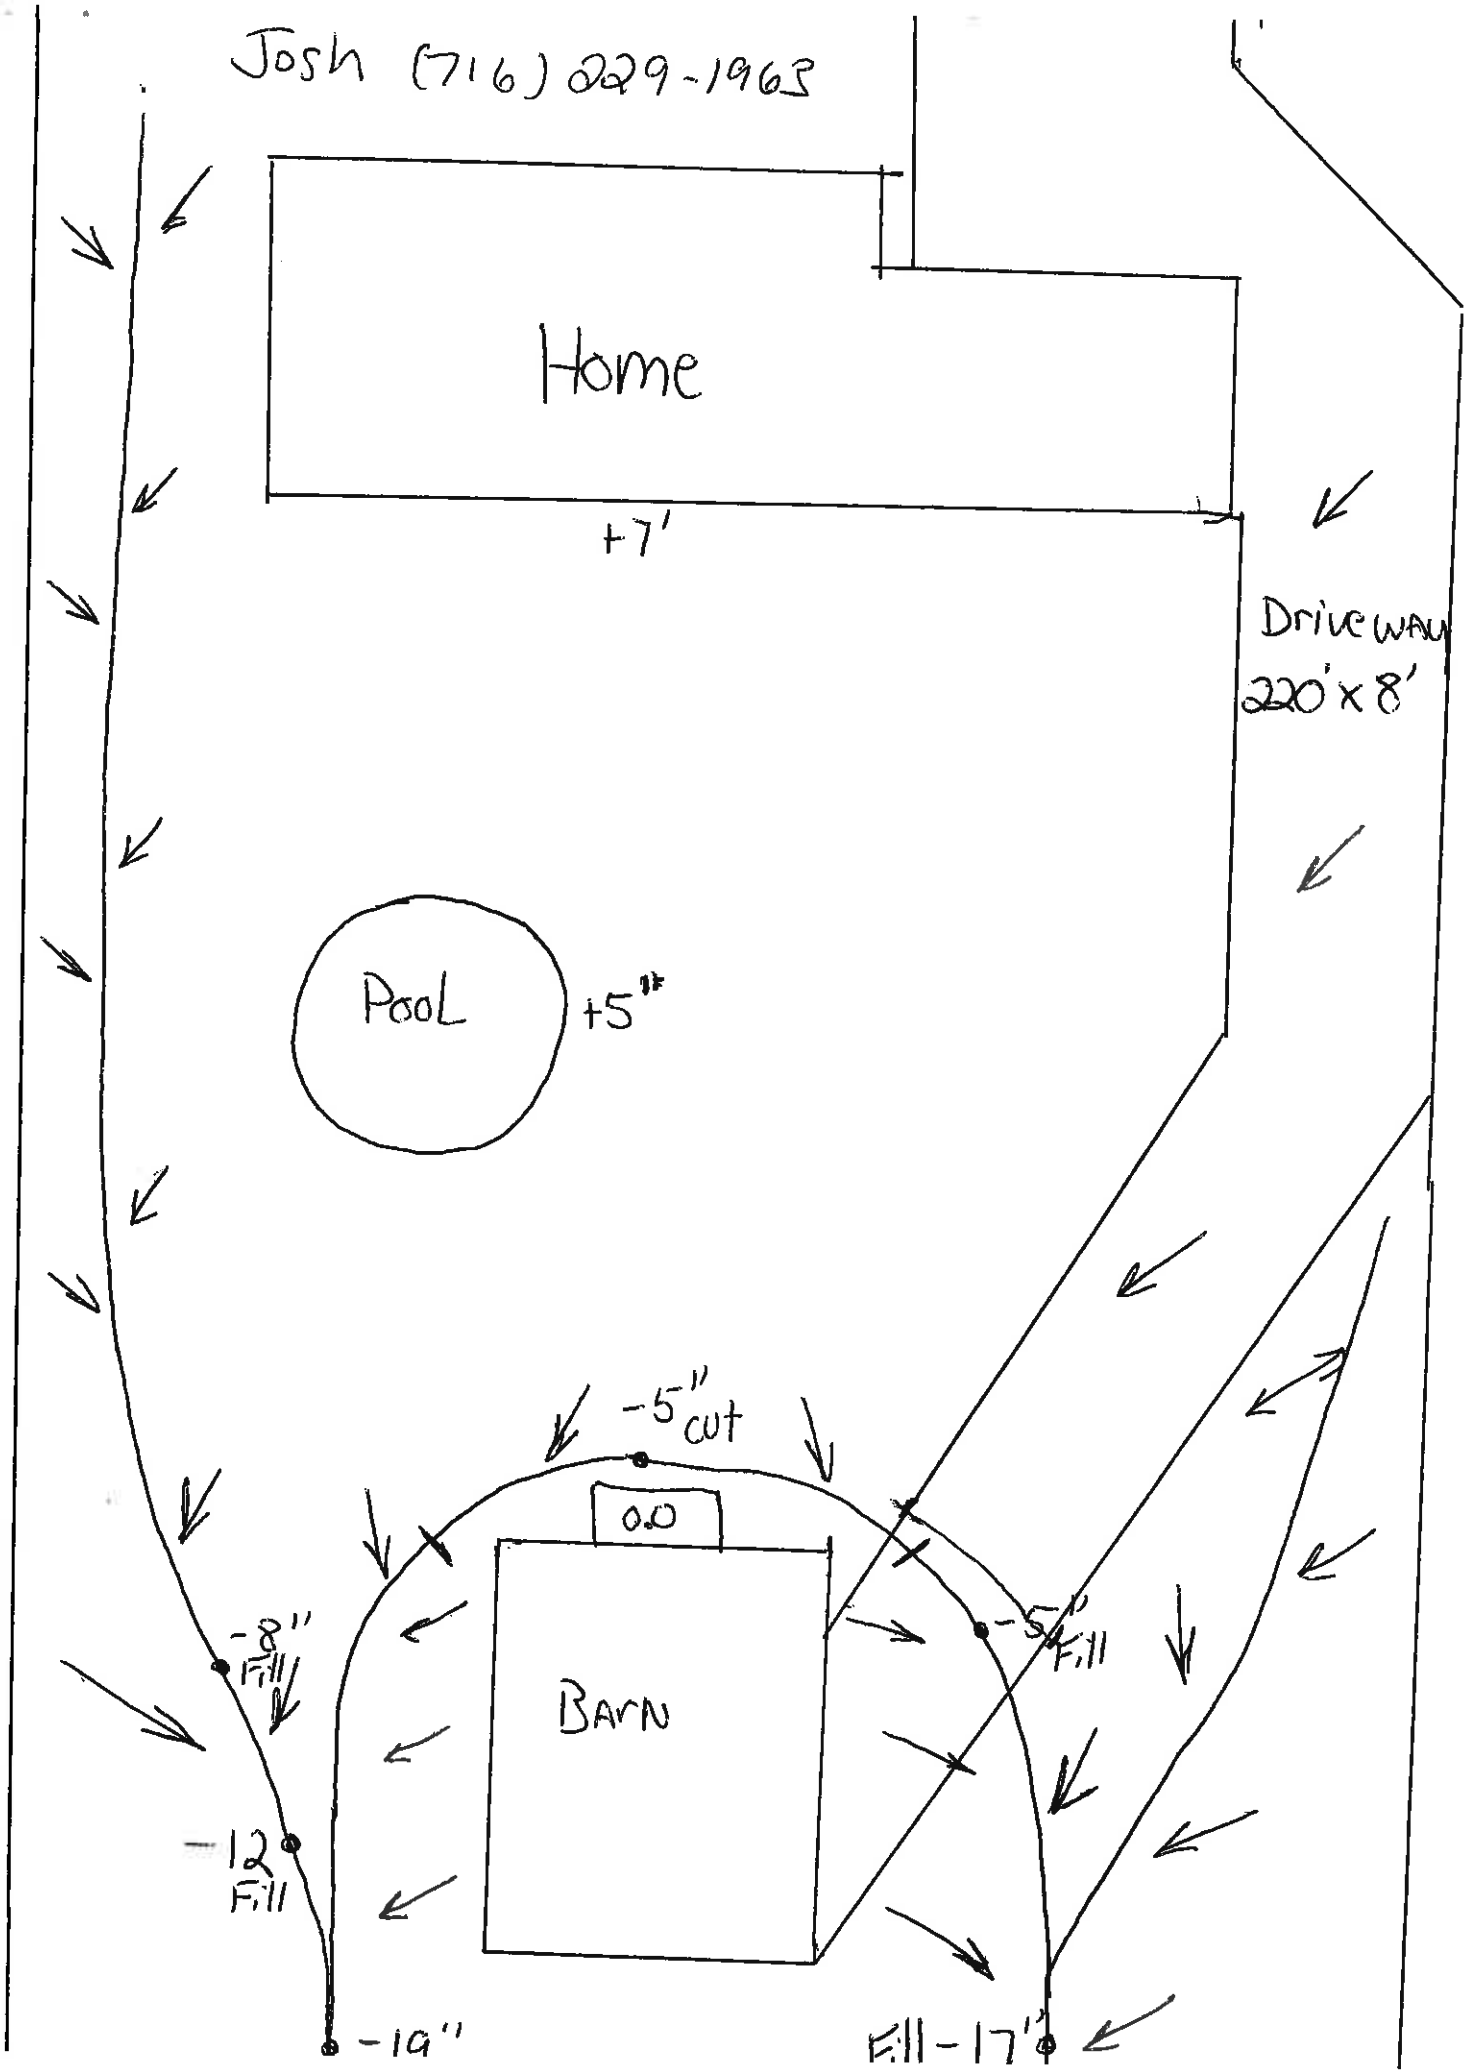 Josh (716) 229-1963
Home
+7'
Driveway
220' x 8'
Pool
+5"
-5"
cut
0.0
-8"
Fill
-5"
Fill
Barn
-12
Fill
-19"
Fill -17"